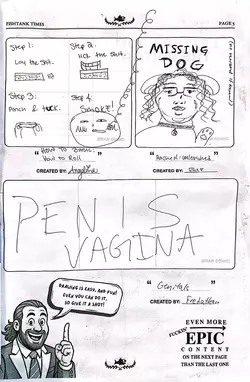 FISHTANK TIMES
PAGE 5
Step 1:
Lay the shit.
Step 2:
lick the shit.
Step 3:
Pinch & tuck.
Step 4.
SMOKE!
MISSING
DOG
" How to Basic:
How to Roll "
CREATED BY: Angelina
" Rached-unleashed "
CREATED BY:
PENIS
VAGINA
" Genitals "
CREATED BY:
DRAWING IS EASY, AND FUN!
EVEN YOU CAN DO IT,
SO GIVE IT A SHOT!
EVEN MORE
FUCKIN' EPIC
CONTENT
ON THE NEXT PAGE
THAN THE LAST ONE